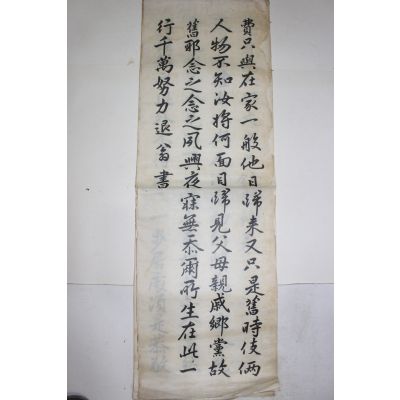 費只與在家一般他日歸来又只是舊時伎倆
人物不知汝將何面目歸見父母親戚鄉黨故
舊邪念之念之夙興夜寐無忝爾所生在此一
行千萬努力退翁書